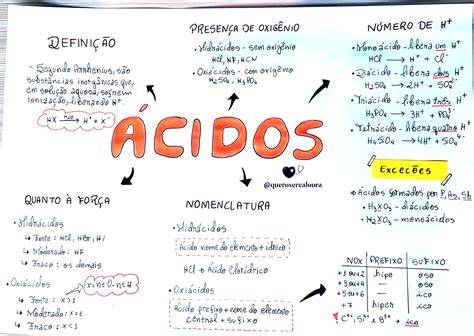 DEFINIÇÃO
• Segundo Arrhenius, são
substâncias inorgânicas que,
em solução aquosa, sofrem
ionização, liberando H⁺.
HX →H₂O H⁺ + X⁻
PRESENÇA DE OXIGÊNIO
• Hidrácidos - sem oxigênio
HCl, HF, HCN
• Oxiácidos - com oxigênio
H₂SO₄, H₃PO₄
NÚMERO DE H⁺
• Monoácido - libera um H⁺
HCl → H⁺ + Cl⁻
• Diácido - libera dois H⁺
H₂SO₄ → 2H⁺ + SO₄²⁻
• Triácido - libera três H⁺
H₃PO₄ → 3H⁺ + PO₄³⁻
• Tetrácido - libera quatro H⁺
H₄SiO₄ → 4H⁺ + SiO₄⁴⁻
ÁCIDOS
@queroserealoura
Exceções
• Ácidos formados por P, As, Sb
H₃XO₃ - diácidos
H₃XO₂ - monoácidos
QUANTO À FORÇA
• Hidrácidos
↳ Forte: HCl, HBr, HI
↳ Moderado: HF
↳ Fraco: os demais
• Oxiácidos
x = nºO - nºH
↳ Forte: x > 1
↳ Moderado: x = 1
↳ Fraco: x < 1
NOMENCLATURA
• Hidrácidos
Ácido nome do elemento + ídrico
HCl → Ácido Clorídrico
• Oxiácidos
Ácido prefixo + nome do elemento
central + sufixo
NOX PREFIXO SUFIXO
+1 ou +2 hipo oso
+3 ou +4 oso
+5 ou +6 ico
+7 hiper ico